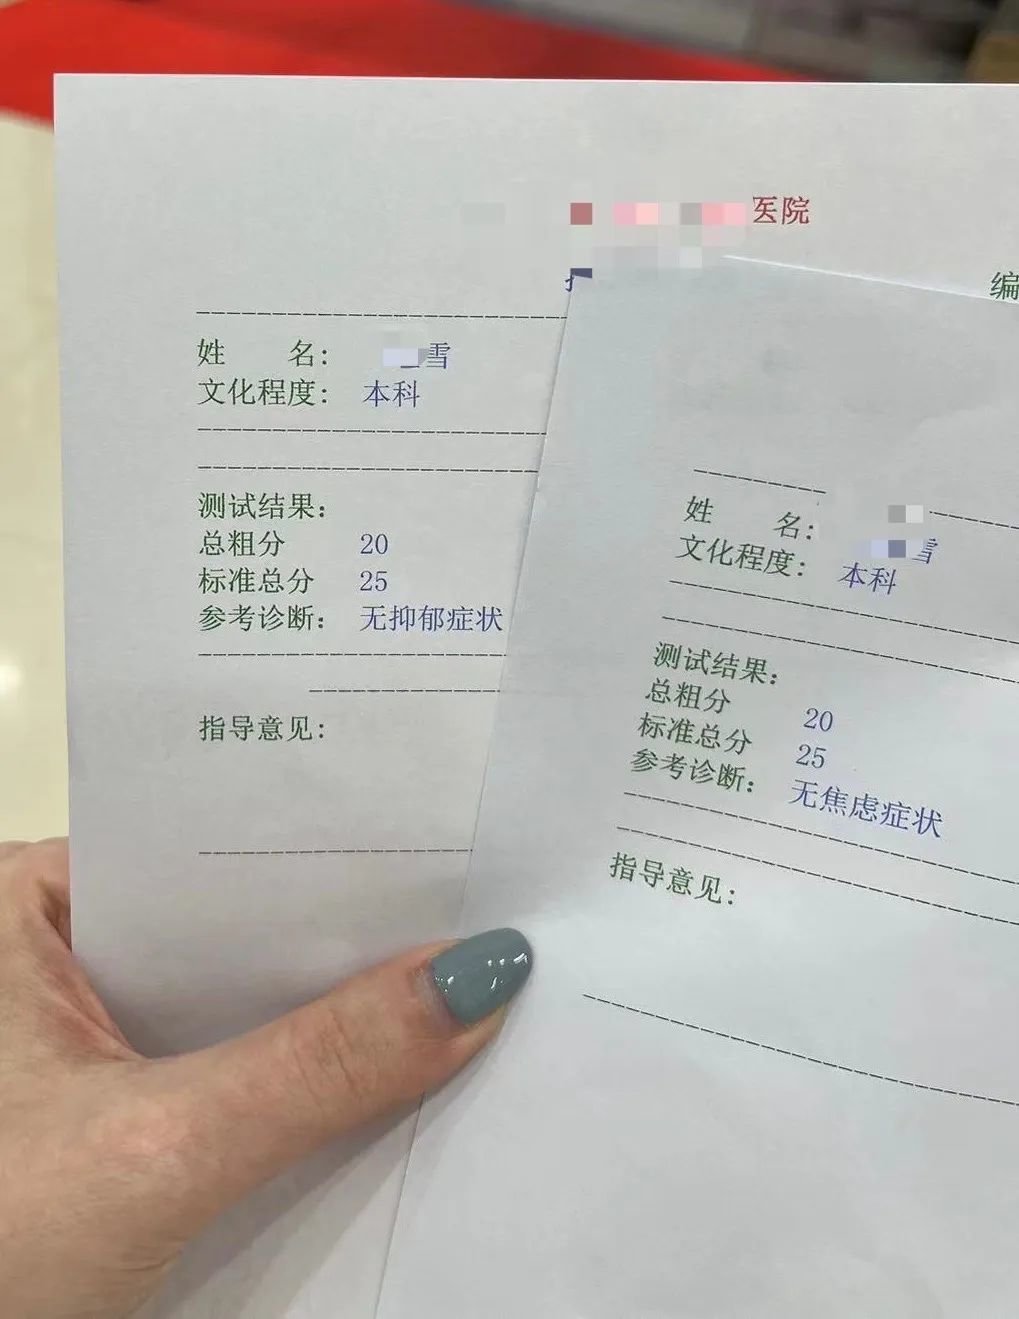 医院
编
姓 名： 雪
文化程度： 本科
测试结果：
总粗分 20
标准总分 25
参考诊断： 无抑郁症状
指导意见：
姓 名： 雪
文化程度： 本科
测试结果：
总粗分 20
标准总分 25
参考诊断： 无焦虑症状
指导意见：